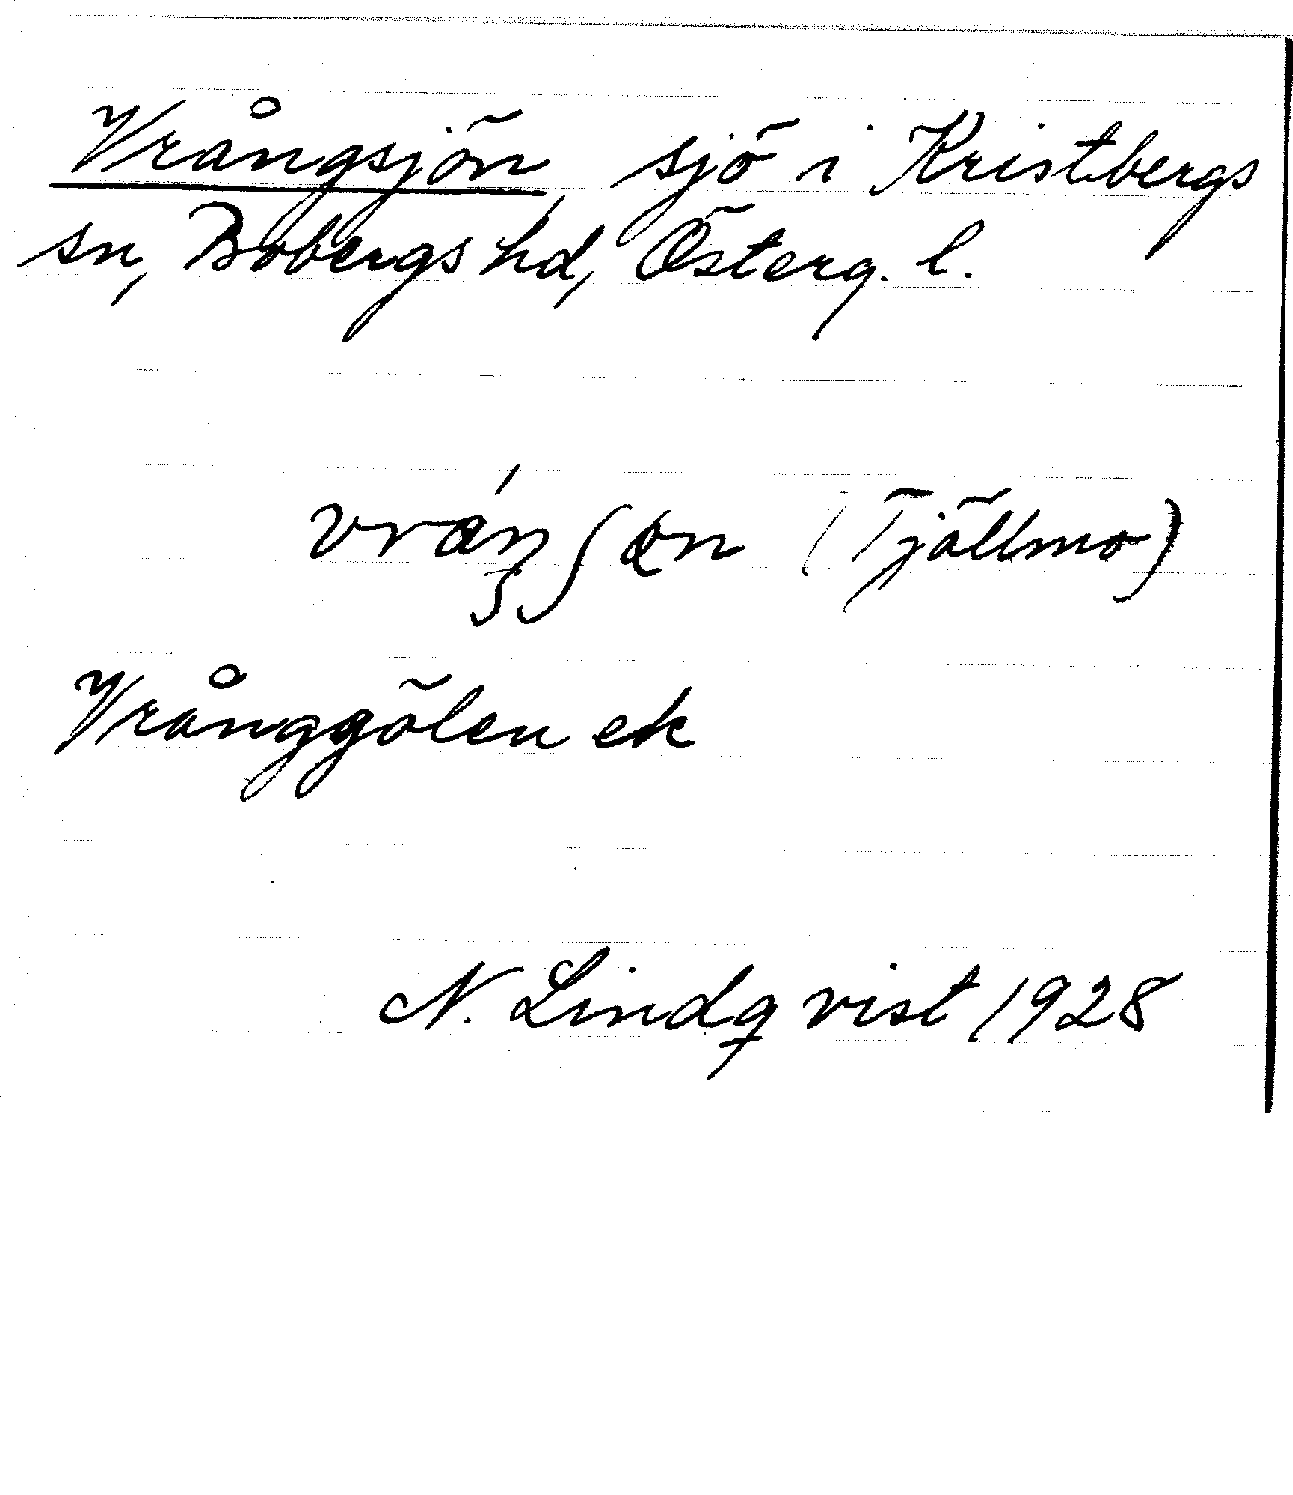 Vrångsjön, sjö i Kristbergs
sn, Bobergs hd, Österg. l.
(Tjällmo)
Vrånggölen ek
N. Lindqvist 1928